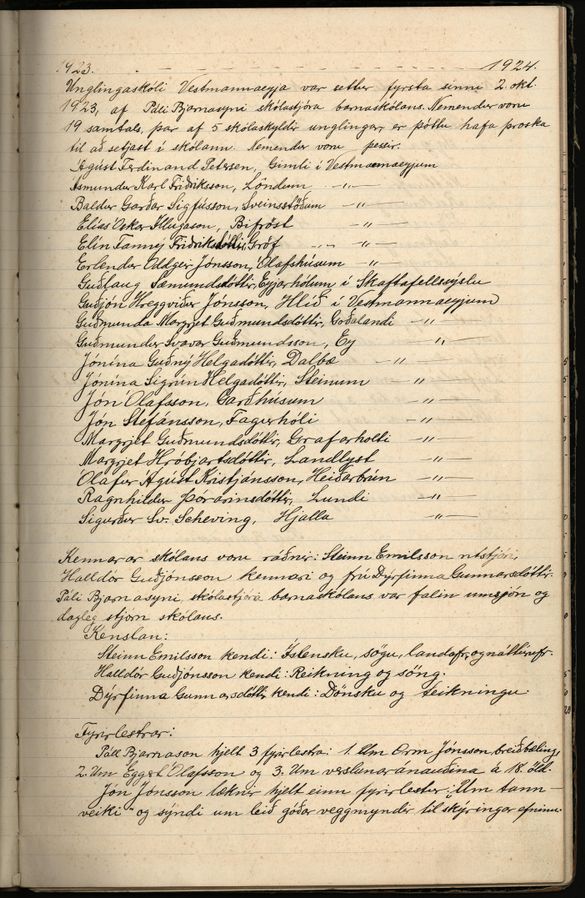 1923. 1924.
Unglingaskóli Vestmannaeyja var settur fyrsta sinni 2. okt.
1923, af Páli Bjarnasyni skólastjóra barnaskólans. Nemendur voru
19 samtals, þar af 5 skólaskyldir unglingar, er þóttu hafa þroska
til að setjast í skólann. Nemendur voru þessir:
Ágúst Ferdinand Petersen, Gimli í Vestmannaeyjum
Ásmundur Karl Friðriksson, Löndum —"—
Baldur Garðar Sigfússon, Sveinsstöðum —"—
Elías Oskar Illugason, Bifröst —"—
Elin Fanney Friðriksdóttir, Gröf —"—
Erlendur Oddgeir Jónsson, Ólafshúsum —"—
Guðlaug Sæmundsdóttir, Eyjarhólum í Skaftafellssýslu
Guðjón Hreggviður Jónsson, Hlíð í Vestmannaeyjum
Guðmunda Margrjet Guðmundsdóttir, Goðalandi —"—
Guðmundur Svavar Guðmundsson, Ey —"—
Jónína Guðný Helgadóttir, Dalbæ —"—
Jónína Sigrún Helgadóttir, Steinum —"—
Jón Ólafsson, Garðhúsum —"—
Jón Stefánsson, Fagurhóli —"—
Margrjet Guðmundsdóttir, Grafarholti —"—
Margrjet Hróbjartsdóttir, Landlyst —"—
Ólafur Ágúst Kristjánsson, Heiðarbrún —"—
Ragnhildur Þórarinsdóttir, Lundi —"—
Sigurður Sv. Scheving, Hjalla —"—
Kennarar skólans voru ráðnir: Steinn Emilsson ritstjóri,
Halldór Guðjónsson kennari og frú Dýrfinna Gunnarsdóttir.
Páli Bjarnasyni skólastjóra barnaskólans var falin umsjón og
dagleg stjórn skólans.
Kenslan:
Steinn Emilsson kendi: Íslensku, sögu, landafr. og náttúrufr.
Halldór Guðjónsson kendi: Reikning og söng.
Dýrfinna Gunnarsdóttir kendi: Dönsku og teikningu
Fyrirlestrar:
Páll Bjarnason hjelt 3 fyrirlestra: 1. Um Orm Jónsson breiðbæling,
2. Um Eggert Ólafsson og 3. Um verslunaránauðina á 18. öld.
Jón Jónsson læknir hjelt einn fyrirlestur: Um tann-
veiki og sýndi um leið góðar veggmyndir til skýringar efninu.